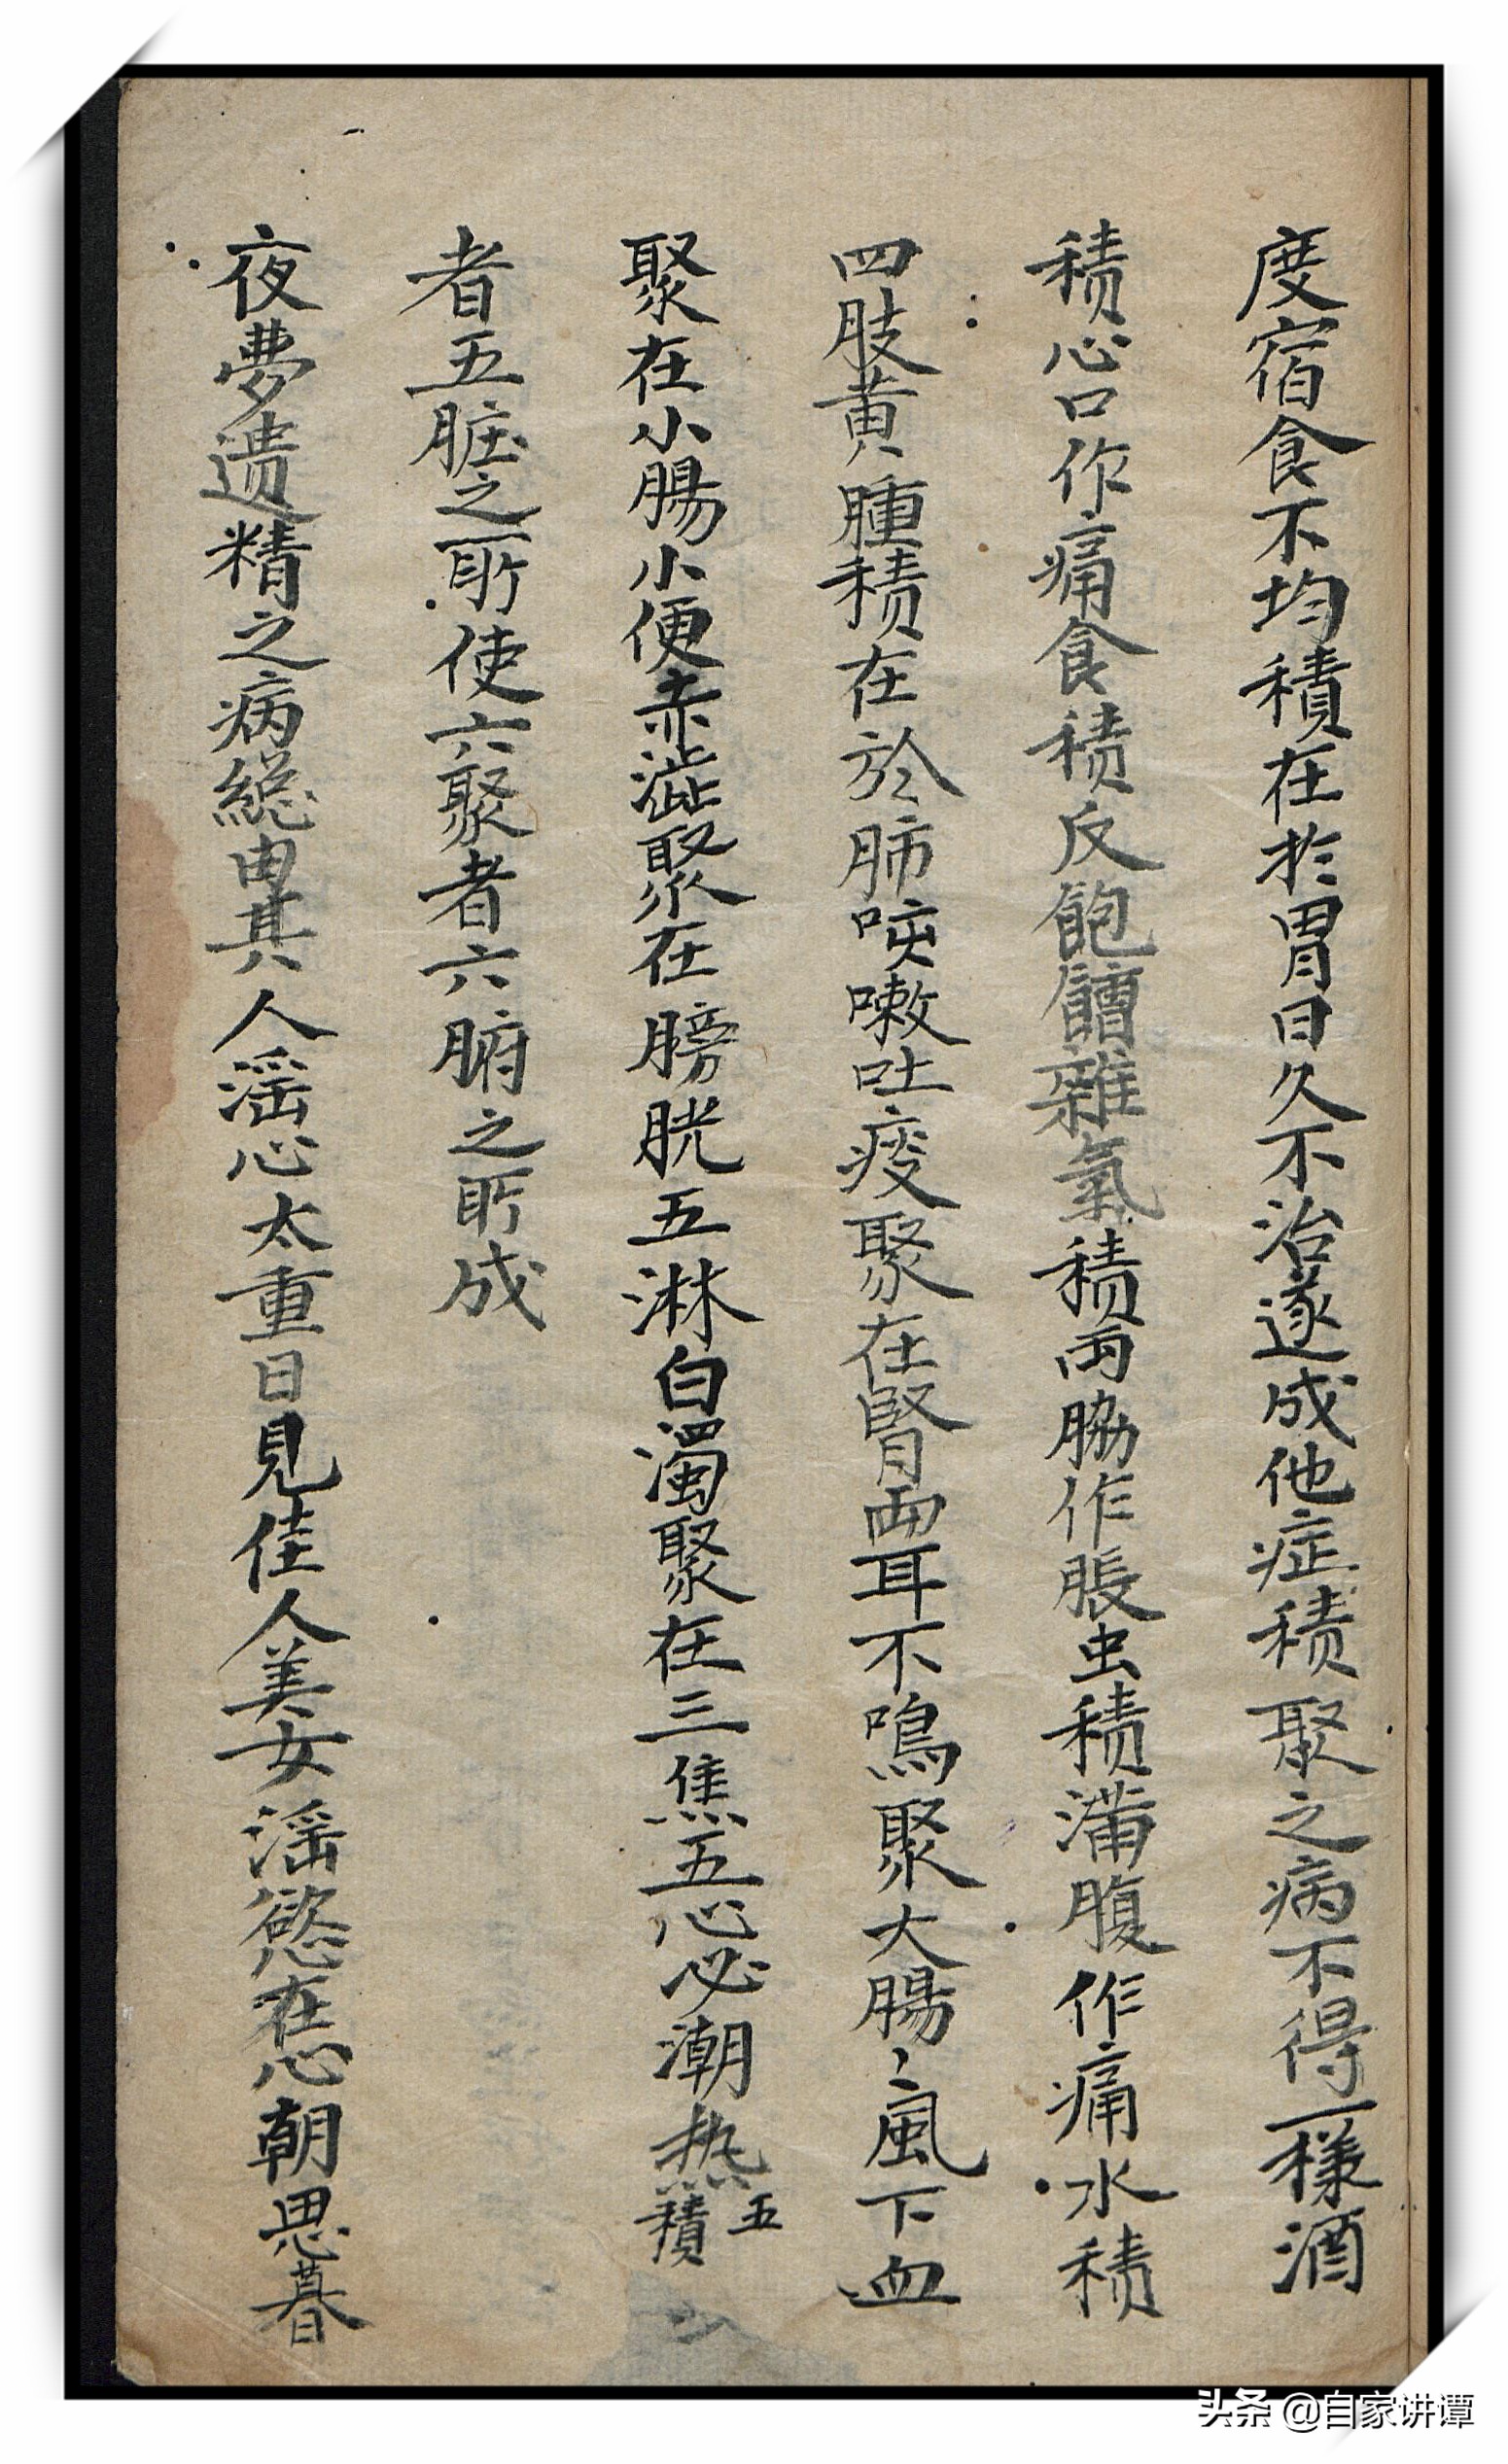 度宿食不均積在扵胃日久不治遂成他症积聚之病不得一樣酒
积心口作痛食积反飽饋雜氣积両脇作脹虫积满腹作痛水积
四肢黄腫积在於肺咳嗽吐痰聚在腎両耳不鳴聚大腸〻風下血
聚在小腸小便赤澁聚在膀胱五淋白濁聚在三焦五心必潮热五積
者五脏之所使六聚者六腑之所成
夜夢遗精之病総由其人滛心太重日見佳人美女滛慾在心朝思暮
头条 @自家讲谭